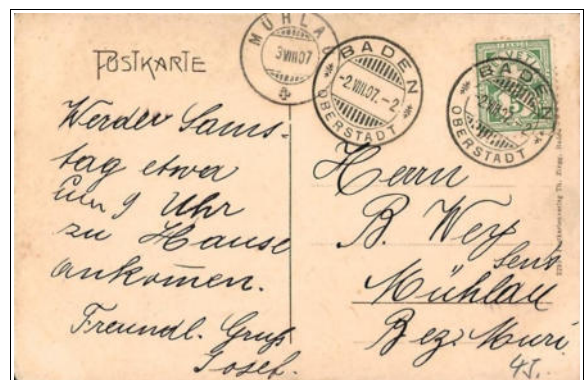 POSTKARTE
MÜHLAU
3 VIII 07
BADEN
-2.VIII.07.-2
OBERSTADT
BADEN
OBERSTADT
Werde Sams-
tag etwa
um 9 Uhr
zu Hause
ankomen.
Freundl. Gruß
Josef.
Herrn
B. Wey
sens
Mühlau
Bez. Muri